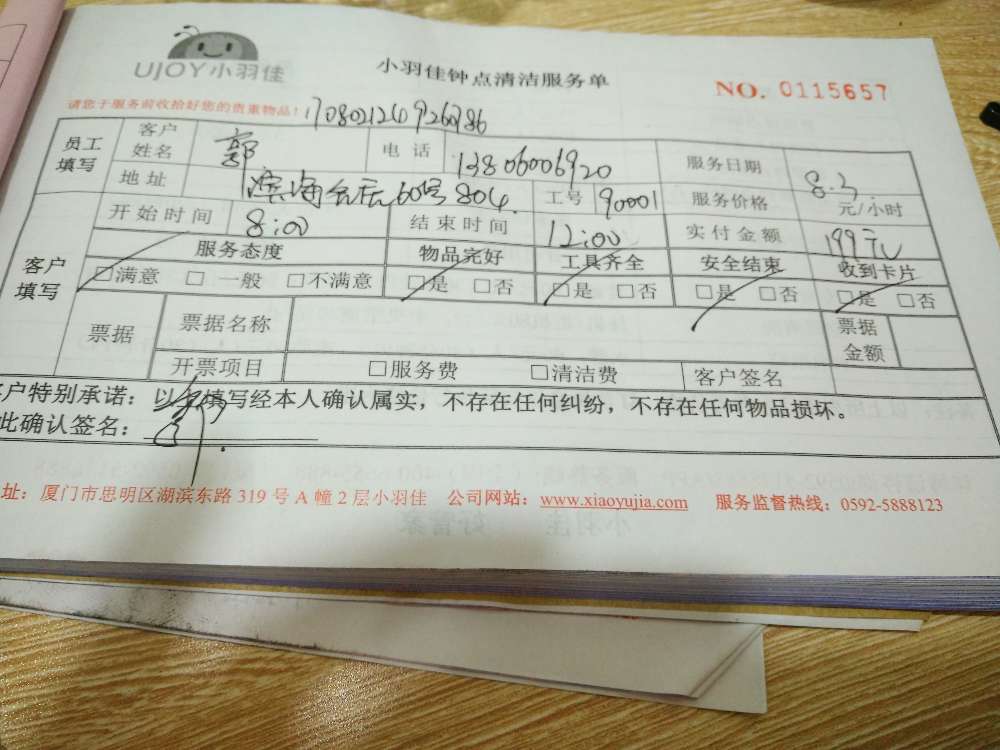 UJOY小羽佳
小羽佳钟点清洁服务单
NO. 0115657
请您于服务前收拾好您的贵重物品!
员工填写 客户姓名 郭 电话 13806006920 服务日期 8.3
地址 60号804 工号 90001 服务价格 元/小时
开始时间 8:00 结束时间 12:00 实付金额 199元
客户填写 服务态度 物品完好 工具齐全 安全结束 收到卡片
□满意 □一般 □不满意 □是 □否 □是 □否 □是 □否 □是 □否
票据 票据名称 票据金额
开票项目 □服务费 □清洁费 客户签名
客户特别承诺:以上填写经本人确认属实,不存在任何纠纷,不存在任何物品损坏。
此确认签名:
址:厦门市思明区湖滨东路319号A幢2层小羽佳 公司网站:www.xiaoyujia.com 服务监督热线:0592-5888123